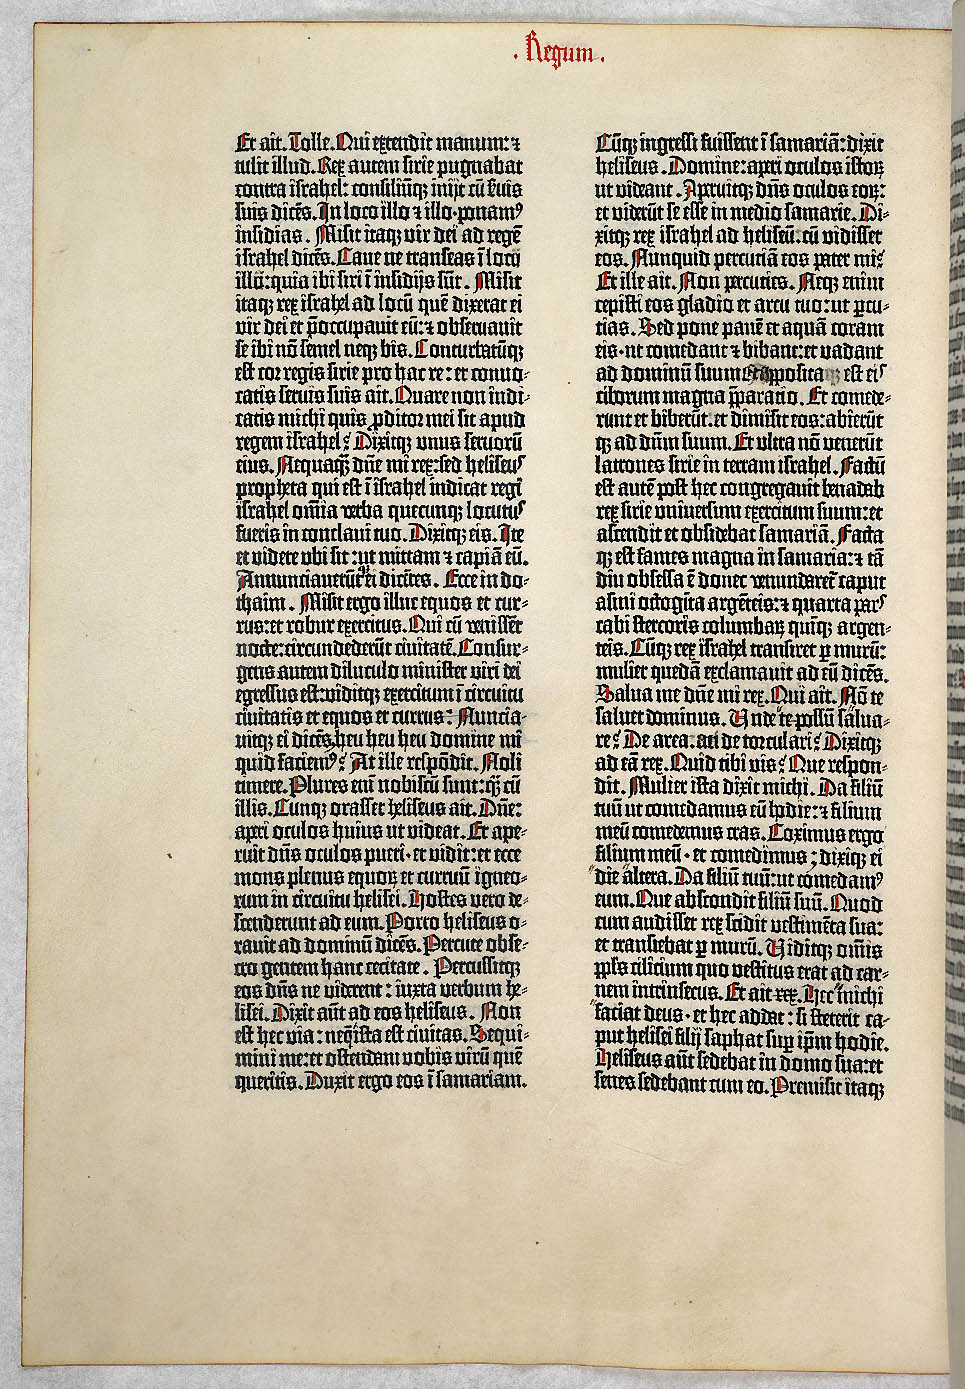 . Regum .
Et ait. Tolle. Qui extendit manum: ⁊
tulit illud. Rex autem sirie pugnabat
contra israhel: consiliūqꝫ inijt cū suis
suis dicēs. In loco illo ⁊ illo·ponamꝰ
insidias. Misit itaqꝫ vir dei ad regē
israhel dicēs. Caue ne transeas ī locū
illū: quia ibi siri ī insidijs sūt. Misit
itaqꝫ rex israhel ad locū quē dixerat ei
vir dei et p̄occupauit eū: ⁊ obseruauit
se ibi nō semel neqꝫ bis. Conturbatūqꝫ
est cor regis sirie pro hac re: et conuo-
catis seruis suis ait. Quare non indi-
catis michi quis ꝓditor mei sit apud
regem israhel? Dixitqꝫ vnus seruorū
eius. Nequaqꝫ dn̄e mi rex: sed heliseus
propheta qui est ī israhel indicat regi
israhel om̄ia verba quecunqꝫ locutus
fueris in conclaui tuo. Dixitqꝫ eis. Ite
et videte vbi sit: ut mittam ⁊ capiā eū.
Annunciauerūtqꝫ ei dicētes. Ecce in do-
thaim. Misit ergo illuc equos et cur-
rus: et robur exercitus. Qui cū venissēt
nocte: circundederūt ciuitatē. Consur-
gens autem diluculo minister viri dei
egressus est: viditqꝫ exercitum ī circuitu
ciuitatis et equos et currus: Nuncia-
uitqꝫ ei dicēs, heu heu heu domine mi
quid faciemꝰ? At ille respōdit. Noli
timere. Plures eni nobiscū sunt: qꝫ cū
illis. Cunqꝫ orasset heliseus ait. Dn̄e:
apri oculos huius ut videat. Et ape-
ruit dn̄s oculos pueri· et vidit: et ecce
mons plenus equoꝝ et curruū igneo-
rum in circuitu helisei. Hostes vero de-
scenderunt ad eum. Porro heliseus o-
rauit ad dominū dicēs. Percute obse-
cro gentem hanc cecitate. Percussitqꝫ
eos dn̄s ne viderent: iuxta verbum he-
lisei. Dixit aūt ad eos heliseus. Non
est hec via: neqꝫ ista est ciuitas. Sequi-
mini me: et ostendam vobis virū quē
queritis. Duxit ergo eos ī samariam.
Cūqꝫ ingressi fuissent ī samariā: dixit
heliseus. Domine: apri oculos istoꝝ
ut videant. Apruitqꝫ dn̄s oculos eoꝝ:
et viderūt se esse in medio samarie. Di-
xitqꝫ rex israhel ad heliseū: cū vidisset
eos. Nunquid percuciā eos pater mi?
Et ille ait. Non percuties. Neqꝫ enim
cepisti eos gladio et arcu tuo: ut ꝑcu-
tias. Sed pone panē et aquā coram
eis· ut comedant ⁊ bibant: et vadant
ad dominū suum Et apposita est eis
ciborum magna p̄paratio. Et comede-
runt et biberūt. et dimisit eos: abierūt
qꝫ ad dn̄m suum. Et vltra nō venerūt
latrones sirie in terram israhel. Factū
est autē post hec congregauit benadab
rex sirie vniuersum exercitum suum: et
ascendit et obsidebat samariā. Facta
qꝫ est fames magna in samaria: ⁊ tā
diu obsessa ē donec venundaret̄ caput
asini octogita argēteis: ⁊ quarta pars
cabi stercoris columbaꝝ quīqꝫ argen-
teis. Cūqꝫ rex israhel transiret ꝑ murū:
mulier quedā exclamauit ad eū dicēs.
Salua me dn̄e mi rex. Qui ait. Nō te
saluet dominus. Unde te possū salua-
re? De area: an de torculari? Dixitqꝫ
ad eā rex. Quid tibi vis? Que respon-
dit. Mulier ista dixit michi. Da filiū
tuū ut comedamus eū hodie: ⁊ filium
meū comedemus cras. Coximus ergo
filium meū· et comedimus; dixiqꝫ ei
die altera. Da filiū tuū: ut comedamꝰ
eum. Que abscondit filiū suū. Quod
cum audisset rex scidit vestimēta sua:
et transiebat ꝑ murū. Uiditqꝫ om̄is
ppl̄s cilicium quo vestitus erat ad car-
nem intrinsecus. Et ait rex. Hec michi
faciat deus· et hec addat: si steterit ca-
put helisei filij saphat suꝑ ip̄m hodie.
Heliseus aūt sedebat in domo sua: et
senes sedebant cum eo. Premisit itaqꝫ